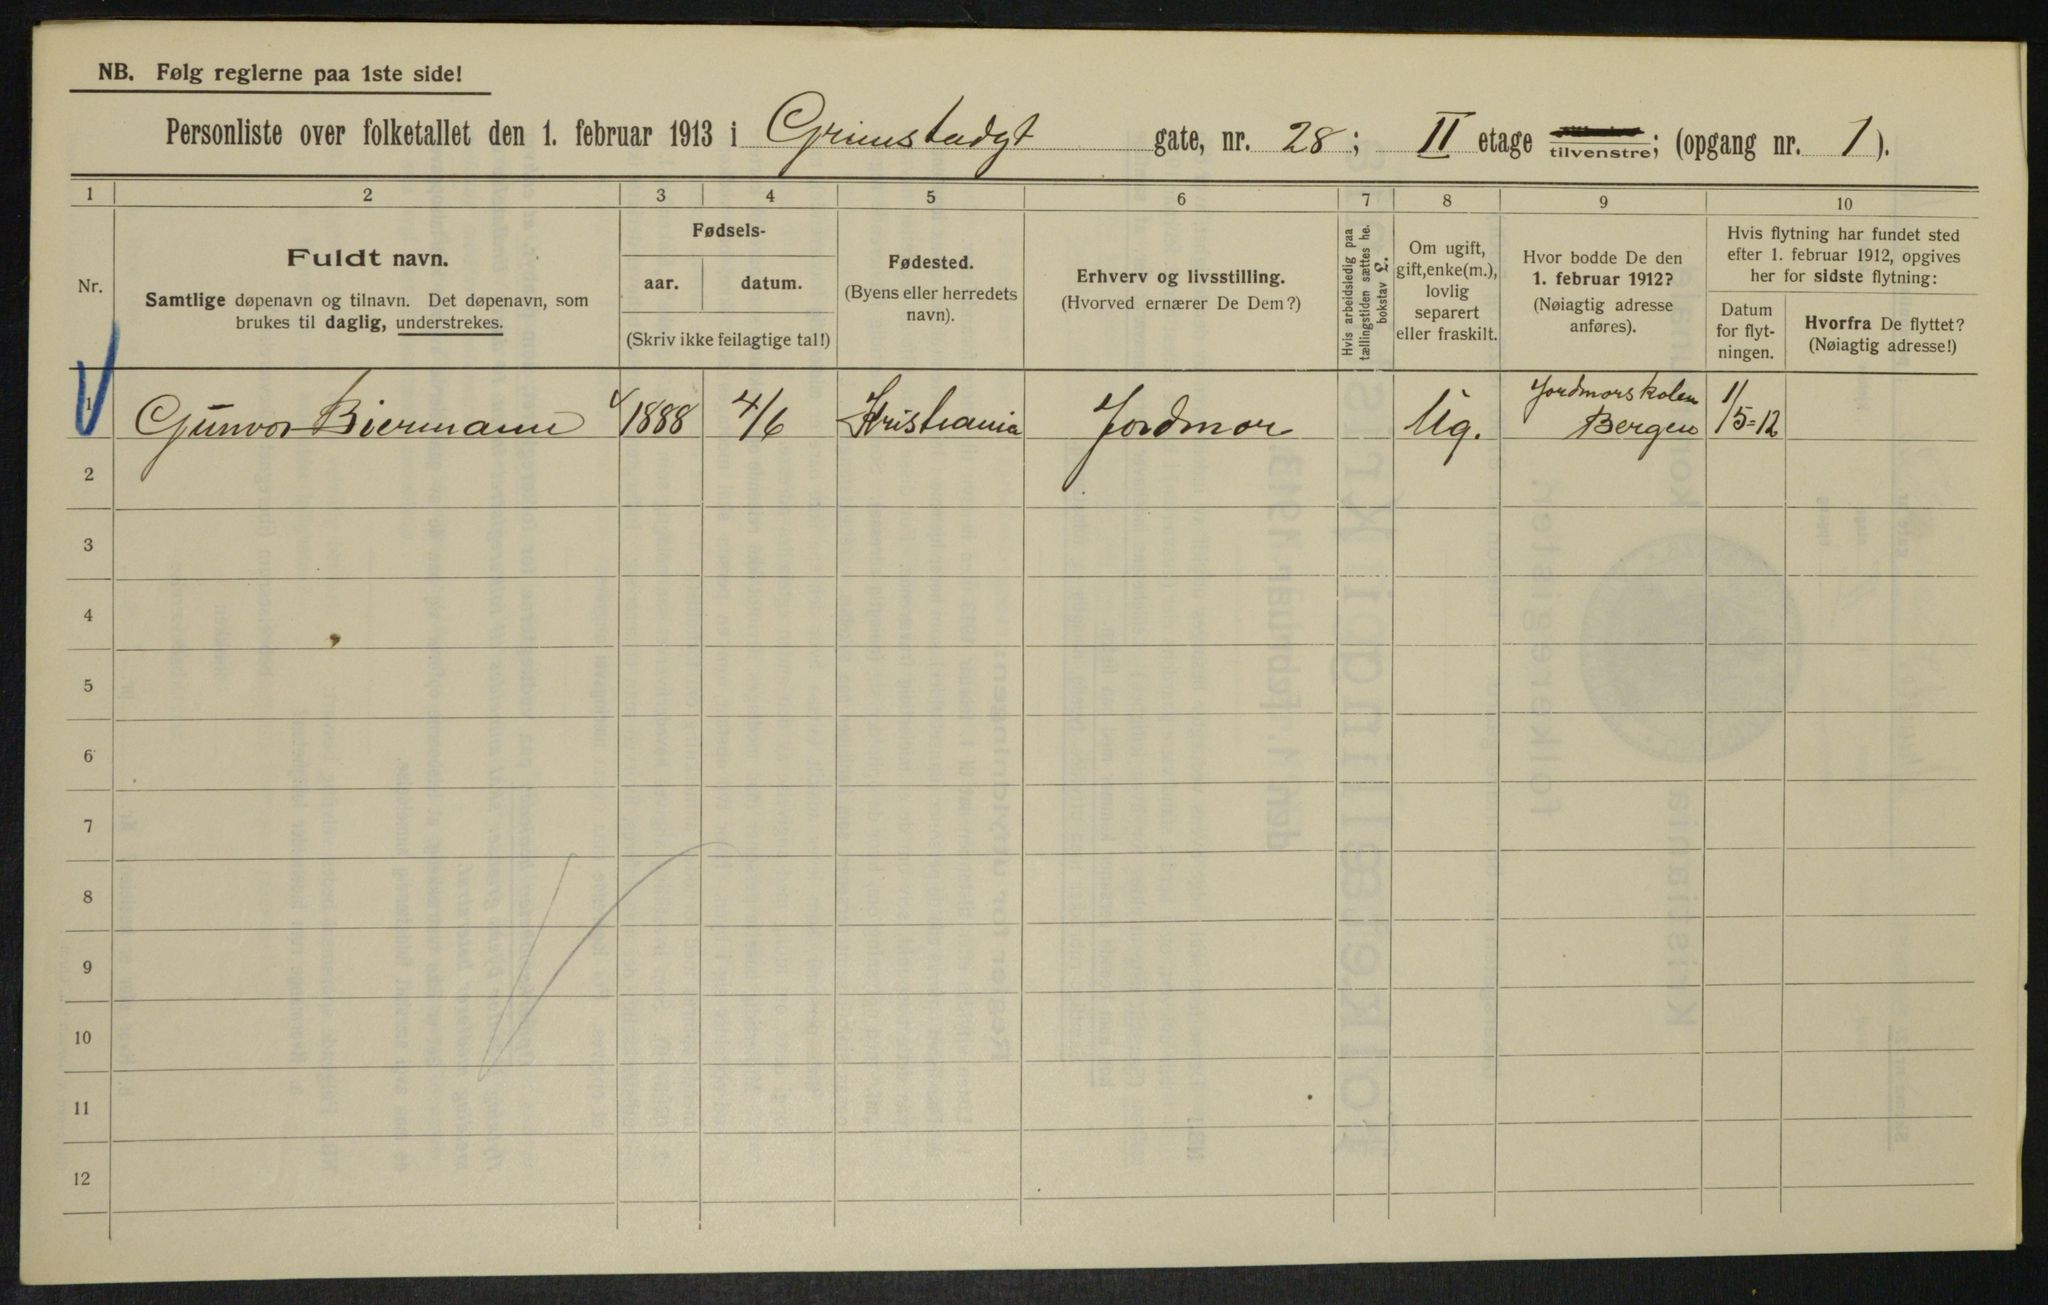 NB. Følg reglerne paa 1ste side!
Personliste over folketallet den 1. februar 1913 i Grimstadgt gate, nr. 28; II etage tilvenstre; (opgang nr. 1).
1 2 3 4 5 6 7 8 9 10
Nr.
Fuldt navn.
Samtlige døpenavn og tilnavn. Det døpenavn, som
brukes til daglig, understrekes.
Fødsels-
aar. datum.
(Skriv ikke feilagtige tal!)
Fødested.
(Byens eller herredets
navn).
Erhverv og livsstilling.
(Hvorved ernærer De Dem?)
Hvis arbeidsledig paa
tællingstiden sættes he.
bokstav £.
Om ugift,
gift, enke(m.),
lovlig
separert
eller fraskilt.
Hvor bodde De den
1. februar 1912?
(Nøiagtig adresse
anføres).
Hvis flytning har fundet sted
efter 1. februar 1912, opgives
her for sidste flytning:
Datum
for flyt-
ningen.
Hvorfra De flyttet?
(Nøiagtig adresse!)
1 Gunvor Biermann 1888 4/6 Kristiania Jordmor Ug. Jordmorskolen Bergen 1/5-12
2
3
4
5
6
7
8
9
10
11
12